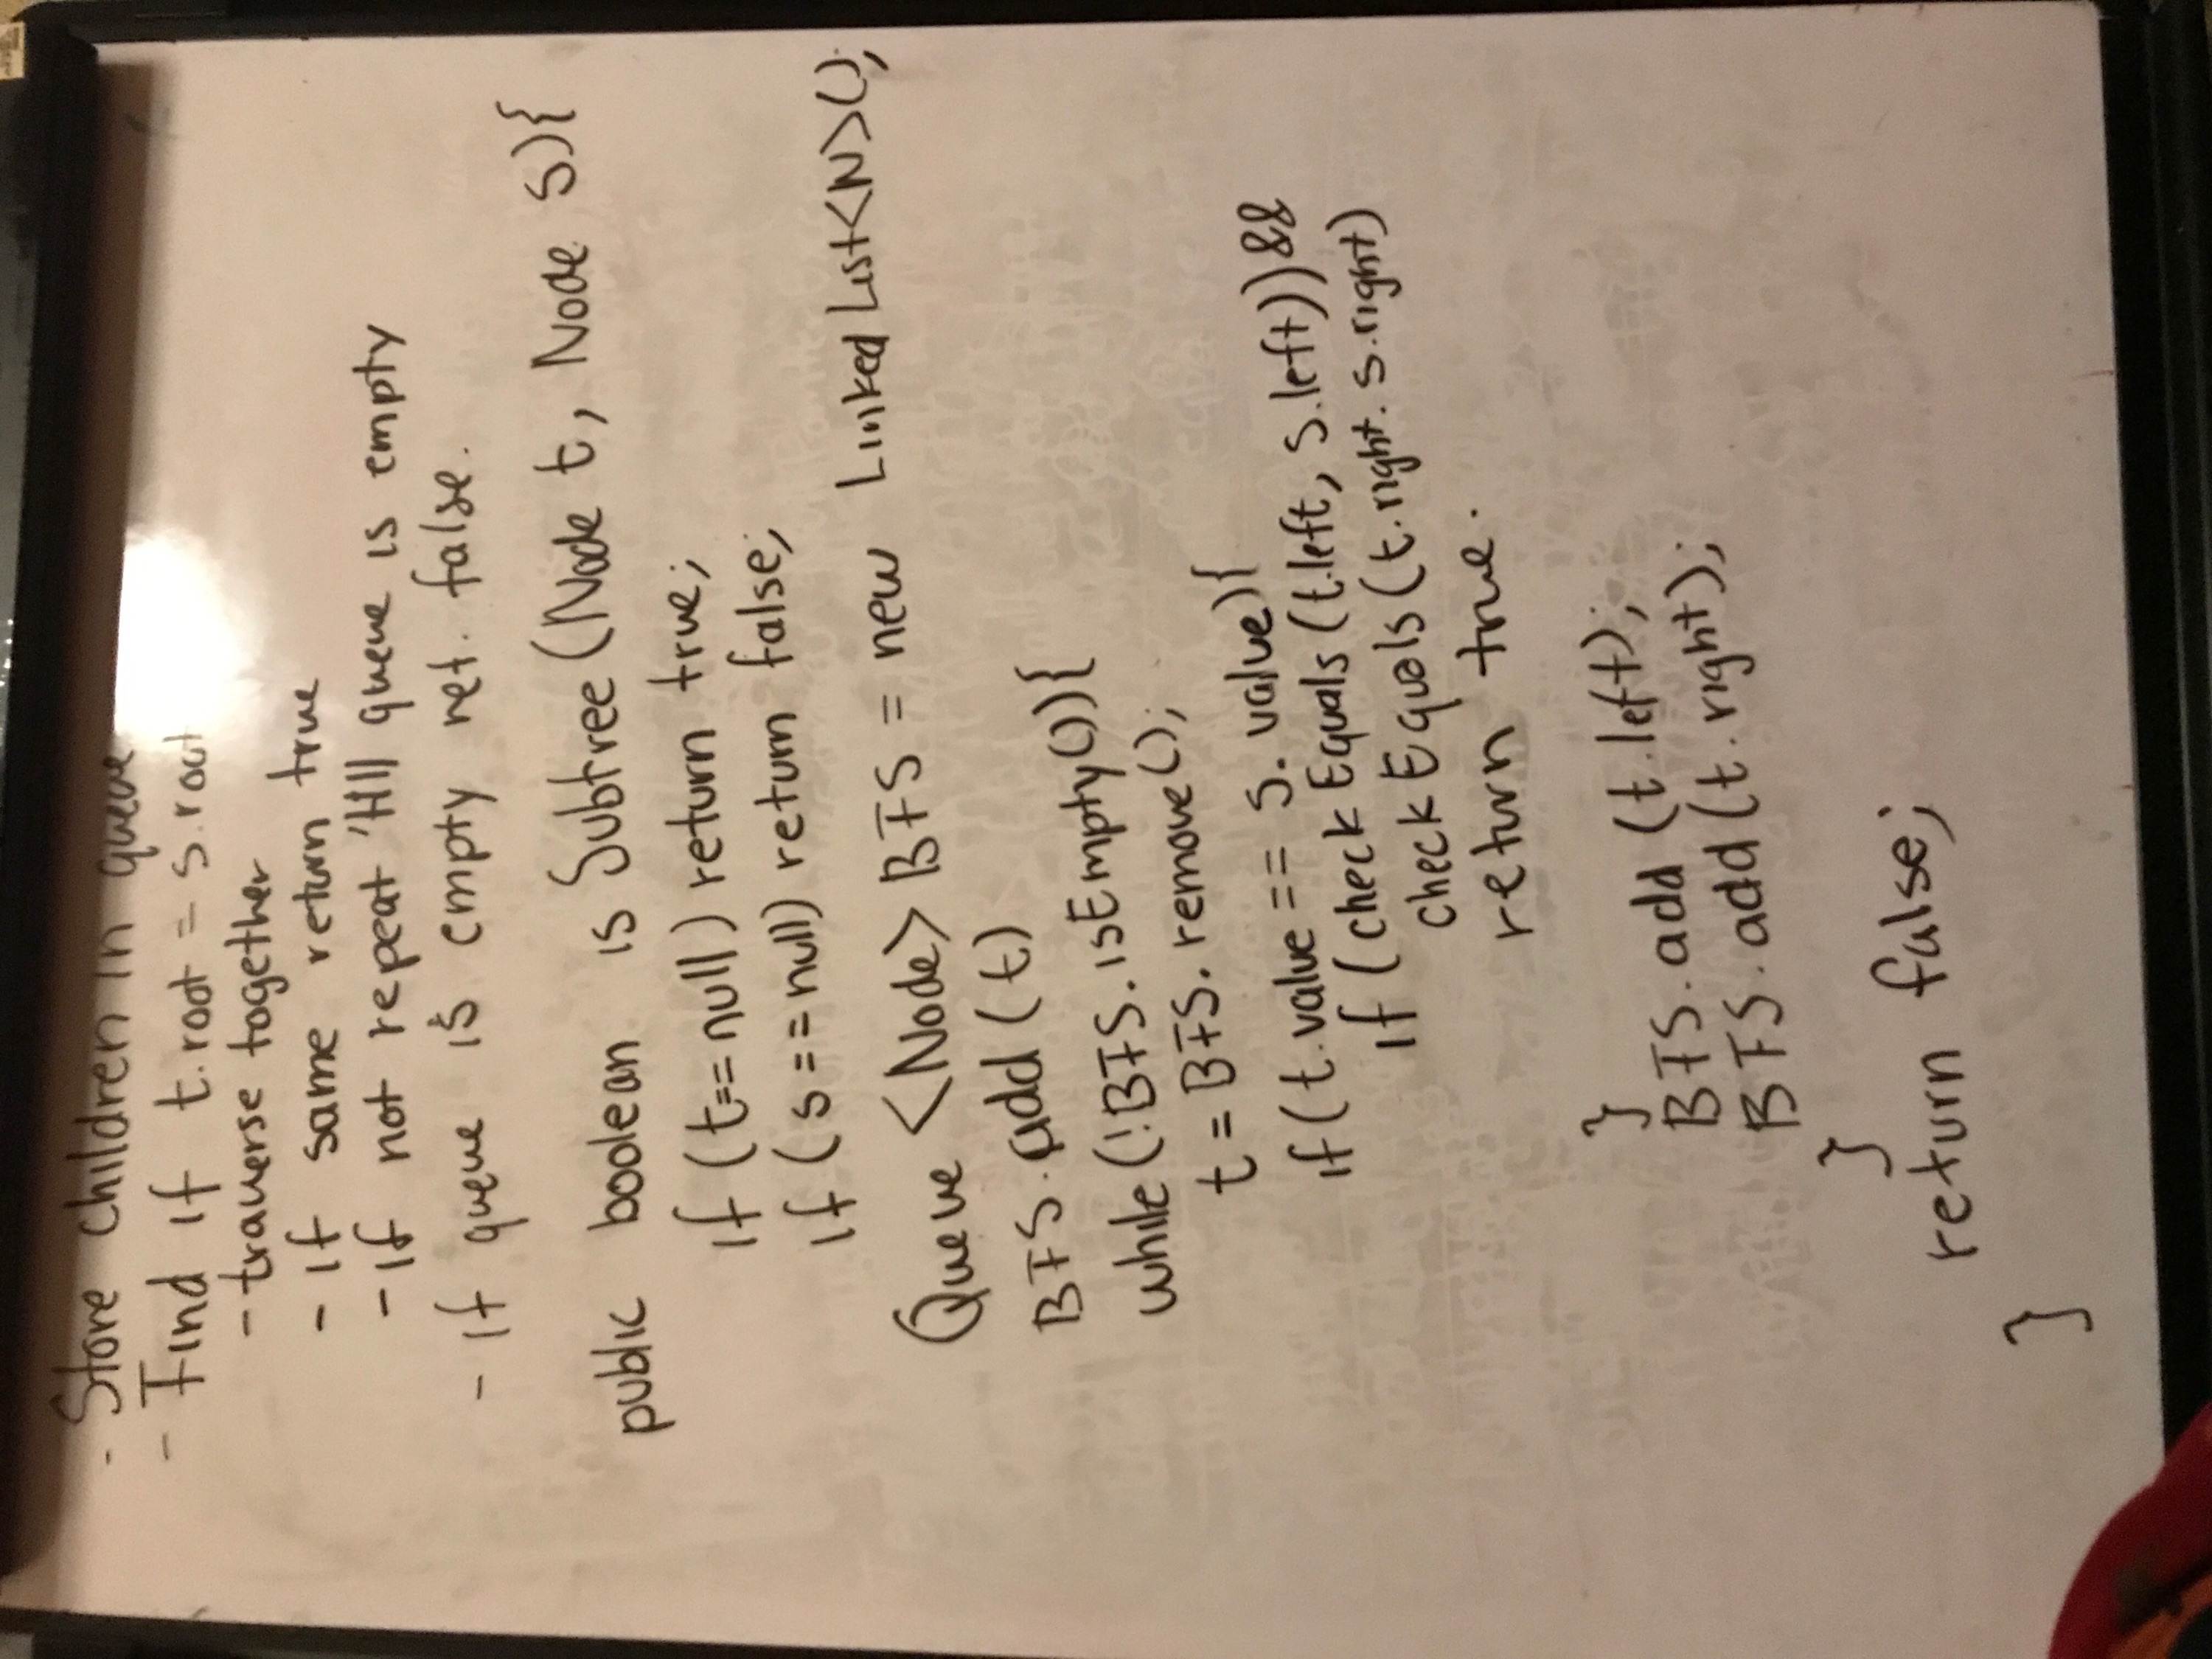 - Store children in queue
- Find if t.root = s.root
- traverse together
- if same return true
- if not repeat 'till queue is empty
- if queue is empty ret. false.
public boolean isSubtree(Node t, Node s){
if (t==null) return true;
if (s==null) return false;
Queue <Node> BFS = new LinkedList<N>();
BFS.add(t)
while(!BFS.isEmpty()){
t = BFS.remove();
if(t.value == s.value){
if (checkEquals(t.left, s.left))&&
checkEquals(t.right. s.right)
return true.
}
BFS.add(t.left);
BFS.add(t.right);
}
return false;
}